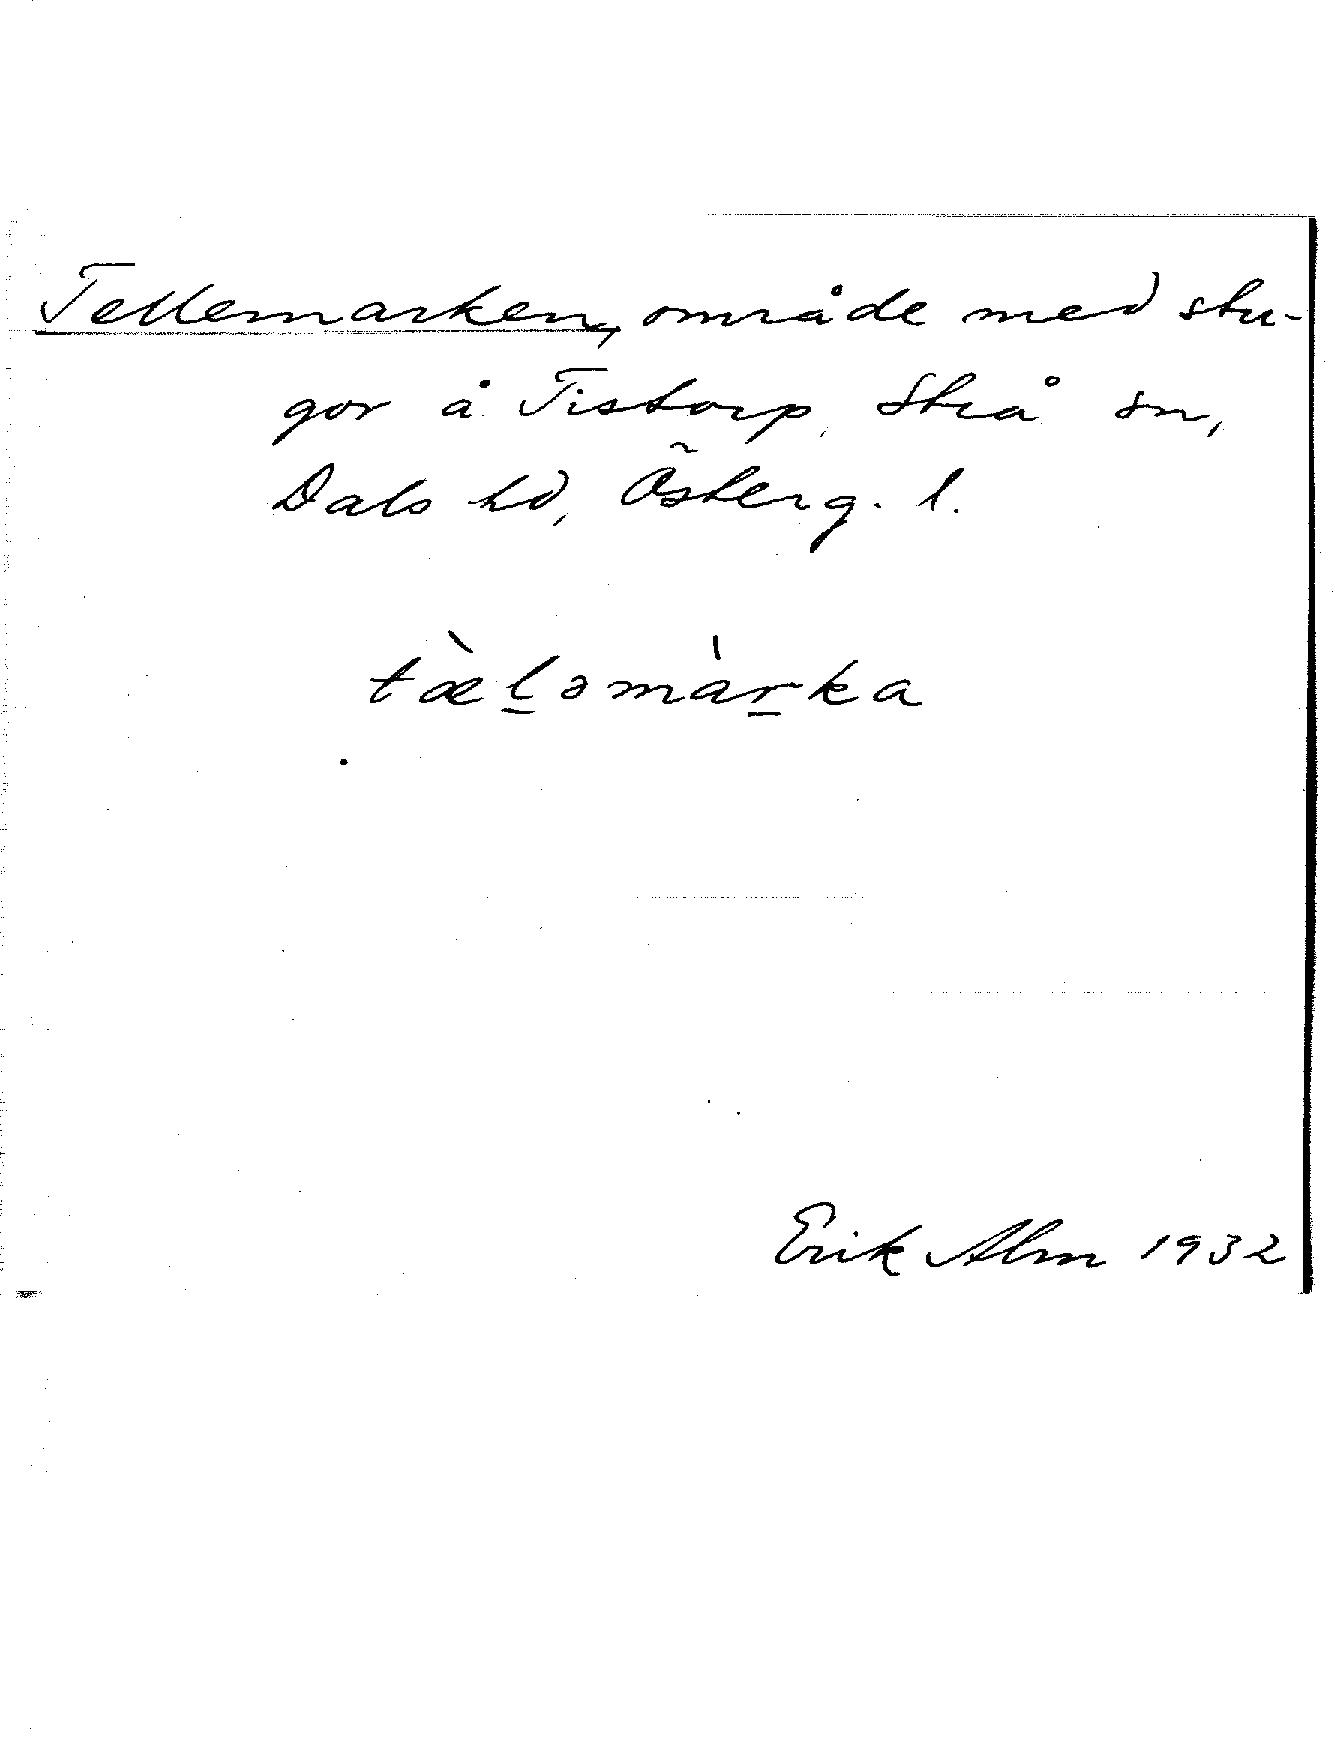 Tellemarken, område med stu-
gor å Tistorp, Strå sn,
Dals hd, Österg. l.
tæ̀l̲əmàr̲ka
Erik Alm 1932